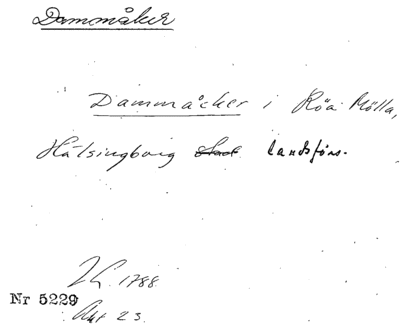 Dammåker
Dammåcker i Röå Mölla,
Hälsingborg landsförs.
1788
Nr 5229
Akt 23.